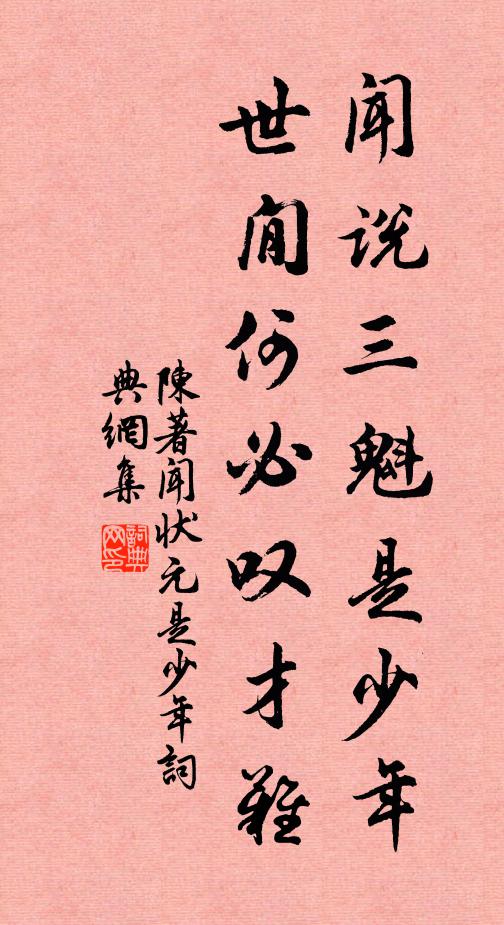 闻说三魁是少年
世间何必叹才难
陳著闻状元是少年詞
典網集
詞典网印